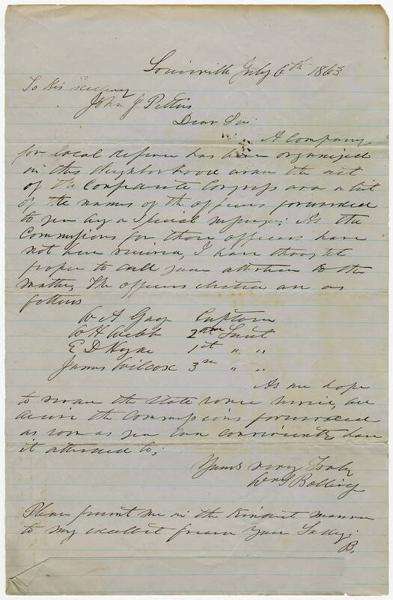 Louisville July 6th 1863
To His Excellency
John J Pettus
Dear Sir
A Company
for local defence has been organized
in this Neighborhood under the act
of the Confederate Congress and a list
of the names of the officers forwarded
to you by a Special messenger. As the
Commissions for those officers have
not been received, I have thought
proper to call your attention to the
matter, The officers elected are as
follows
W A Gage Captain
W H Webb 2nd Lieut
E D 1st " "
James Wilcox 3rd " "
As we hope
to render the State some service, we
desire the Commissions forwarded
as soon as you can conveniently have
it attended to.
Yours very Truly
Bolling
Please present me in the kindest manner
to my excellent friend Your Lady.
B.